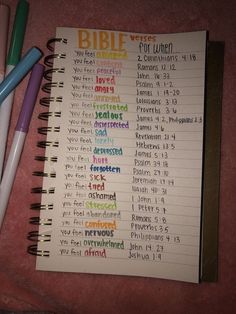 BIBLE verses
for when
you feel ashamed 2 Corinthians 4:18
you feel content Romans 12:12
you feel peaceful John 16:33
you feel loved Psalm 9:1-2
you feel angry James 1:19-20
you feel annoyed Colossians 3:13
you feel frustrated Proverbs 3:5
you feel jealous James 4:2, Philippians 2:3
you feel disrespected James 4:6
you feel sad Revelation 21:4
you feel lonely Hebrews 13:5
you feel depressed James 5:13
you feel hurt Psalm 34:18
you feel forgotten Psalm 27:10
you feel sick Jeremiah 17:14
you feel tired Isaiah 40:31
you feel ashamed 1 John 1:9
you feel stressed 1 Peter 5:7
you feel abandoned Romans 5:8
you feel confused Proverbs 3:5
you feel nervous Philippians 4:13
you feel overwhelmed John 14:27
you feel afraid Joshua 1:9